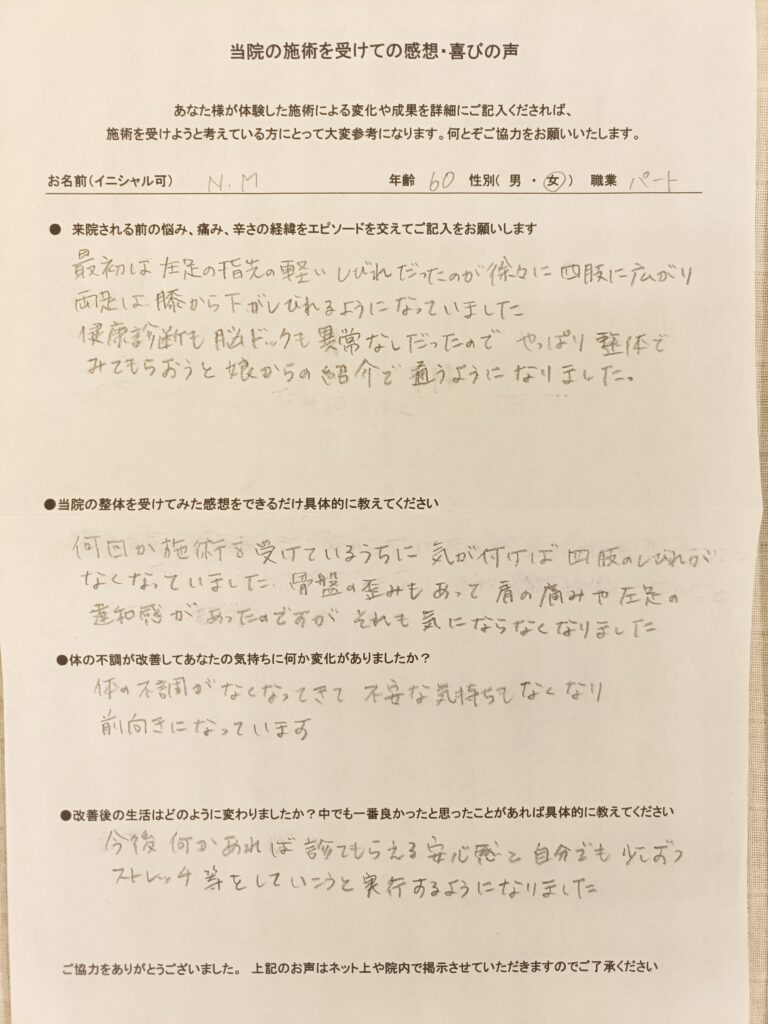 当院の施術を受けての感想・喜びの声
あなた様が体験した施術による変化や成果を詳細にご記入くだされば、
施術を受けようと考えている方にとって大変参考になります。何とぞご協力をお願いいたします。
お名前(イニシャル可) N.M 年齢 60 性別( 男 ・ 女 ) 職業 パート
● 来院される前の悩み、痛み、辛さの経緯をエピソードを交えてご記入をお願いします
最初は 左足の指先の軽い しびれだったのが 徐々に 四肢に広がり
両足は 膝から下がしびれるようになっていました
健康診断も 脳ドックも 異常なしだったので やっぱり 整体で
みてもらおうと 娘からの紹介で 通うようになりました。
●当院の整体を受けてみた感想をできるだけ具体的に教えてください
何回か施術を 受けているうちに 気が付けば 四肢のしびれが
なくなっていました 骨盤の歪みもあって 肩の痛みや 左足の
違和感があったのですが それも 気にならなくなりました
●体の不調が改善してあなたの気持ちに何か変化がありましたか？
体の不調がなくなってきて 不安な気持ちもなくなり
前向きになっています
●改善後の生活はどのように変わりましたか？中でも一番良かったと思ったことがあれば具体的に教えてください
今後 何かあれば 診てもらえる 安心感と 自分でも 少しづつ
ストレッチ 等をしていこうと 実行するようになりました
ご協力をありがとうございました。 上記のお声はネット上や院内で掲示させていただきますのでご了承ください